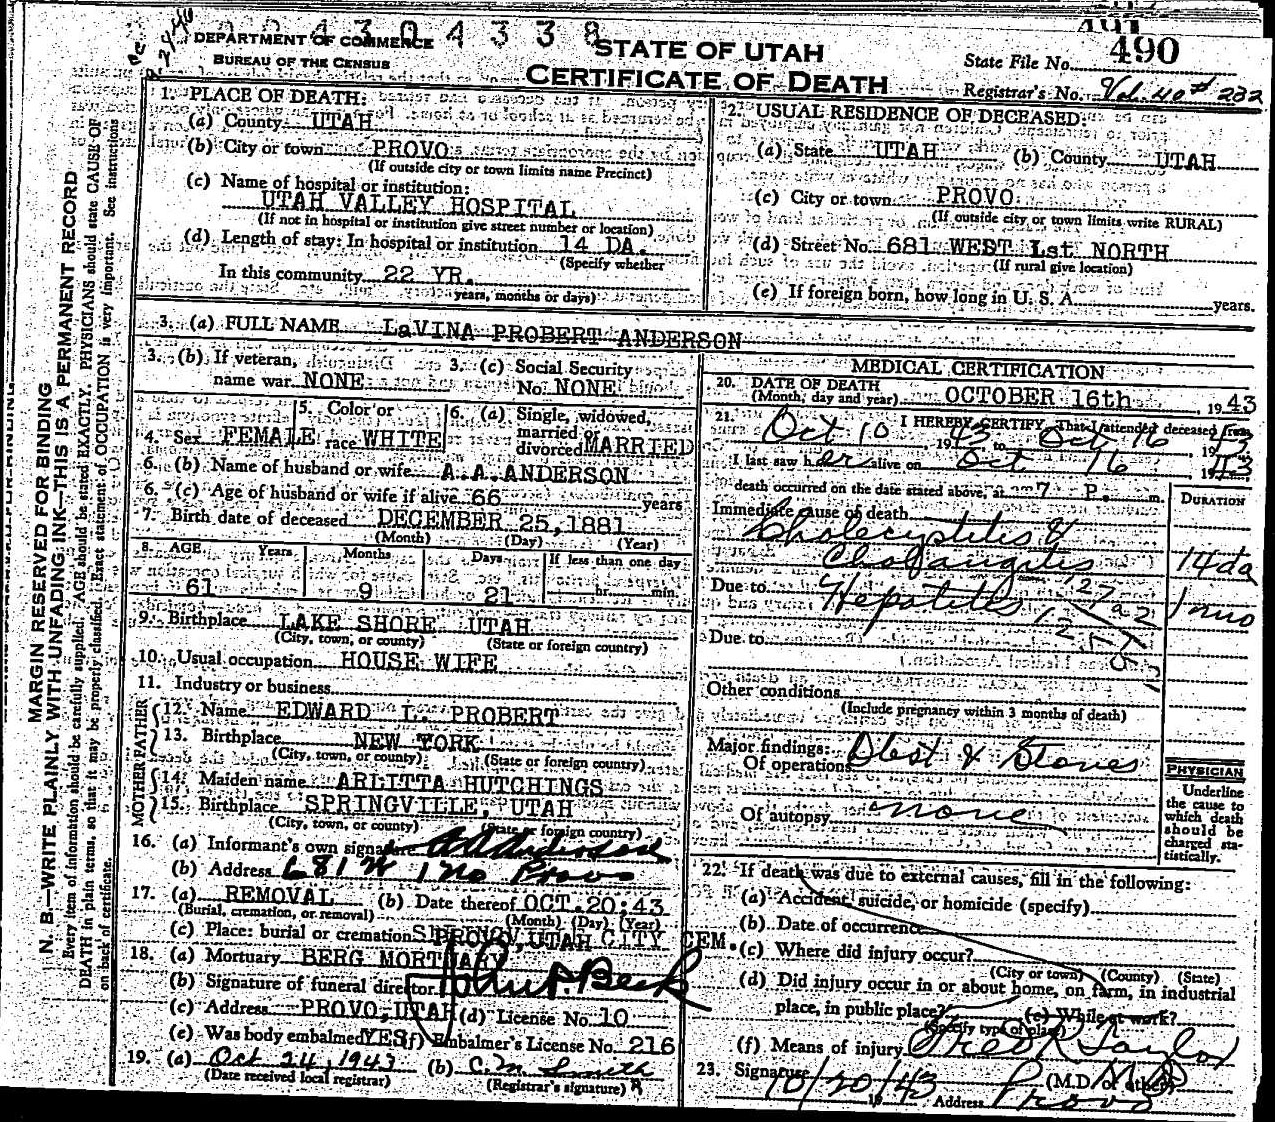 0 2 4 3 0 4 3 3 8
491
490
DEPARTMENT OF COMMERCE
BUREAU OF THE CENSUS
STATE OF UTAH
CERTIFICATE OF DEATH
State File No.
Registrar's No. Vol. 40 # 232
1. PLACE OF DEATH:
(a) County UTAH
(b) City or town PROVO
(If outside city or town limits name Precinct)
(c) Name of hospital or institution:
UTAH VALLEY HOSPITAL
(If not in hospital or institution give street number or location)
(d) Length of stay: In hospital or institution 14 DA.
(Specify whether
In this community 22 YR.
years, months or days)
2. USUAL RESIDENCE OF DECEASED:
(a) State UTAH (b) County UTAH
(c) City or town PROVO
(If outside city or town limits write RURAL)
(d) Street No. 681 WEST 1st NORTH
(If rural give location)
(e) If foreign born, how long in U. S. A. years.
3. (a) FULL NAME LaVINA PROBERT ANDERSON
3. (b) If veteran, name war NONE
3. (c) Social Security No. NONE
4. Sex FEMALE
5. Color or race WHITE
6. (a) Single, widowed, married or divorced MARRIED
6. (b) Name of husband or wife A. A. ANDERSON
6. (c) Age of husband or wife if alive 66 years
7. Birth date of deceased DECEMBER 25, 1881
(Month) (Day) (Year)
8. AGE Years Months Days If less than one day
61 9 21 hr. min.
9. Birthplace LAKE SHORE UTAH
(City, town, or county) (State or foreign country)
10. Usual occupation HOUSE WIFE
11. Industry or business
FATHER
12. Name EDWARD L. PROBERT
13. Birthplace NEW YORK
(City, town, or county) (State or foreign country)
MOTHER
14. Maiden name ARLITTA HUTCHINGS
15. Birthplace SPRINGVILLE, UTAH
(City, town, or county) (State or foreign country)
16. (a) Informant's own signature A A Anderson
(b) Address 681 W 1 No Provo
17. (a) REMOVAL (b) Date thereof OCT. 20:43
(Burial, cremation, or removal) (Month) (Day) (Year)
(c) Place: burial or cremation PROVO, UTAH CITY CEM.
18. (a) Mortuary BERG MORTUARY
(b) Signature of funeral director
(c) Address PROVO, UTAH (d) License No. 10
(e) Was body embalmed YES (f) Embalmer's License No. 216
19. (a) Oct 24, 1943 (b) C.M. Smith
(Date received local registrar) (Registrar's signature)
MEDICAL CERTIFICATION
20. DATE OF DEATH
(Month, day and year) OCTOBER 16th, 1943
21. I HEREBY CERTIFY, That I attended deceased from
Oct 10 1943 to Oct 16 1943
I last saw her alive on Oct 16 1943
death occurred on the date stated above, at 7 P. m.
DURATION
Immediate cause of death
Cholecystites &
Cholangites 14 da
Due to Hepatites 1 mo
Due to
Other conditions
(Include pregnancy within 3 months of death)
Major findings:
Of operations & Stones
Of autopsy none
PHYSICIAN
Underline
the cause to
which death
should be
charged sta-
tistically.
22. If death was due to external causes, fill in the following:
(a) Accident, suicide, or homicide (specify)
(b) Date of occurrence
(c) Where did injury occur?
(City or town) (County) (State)
(d) Did injury occur in or about home, on farm, in industrial
place, in public place? (e) While at work?
(Specify type of place)
(f) Means of injury
23. Signature Fred R Taylor
(M.D. or other) MD
10/20/43 19 Address Provo
MARGIN RESERVED FOR BINDING
N. B.—WRITE PLAINLY WITH UNFADING INK—THIS IS A PERMANENT RECORD
Every item of information should be carefully supplied. AGE should be stated EXACTLY. PHYSICIANS should state CAUSE OF
DEATH in plain terms, so that it may be properly classified. Exact statement of OCCUPATION is very important. See instructions
on back of certificate.